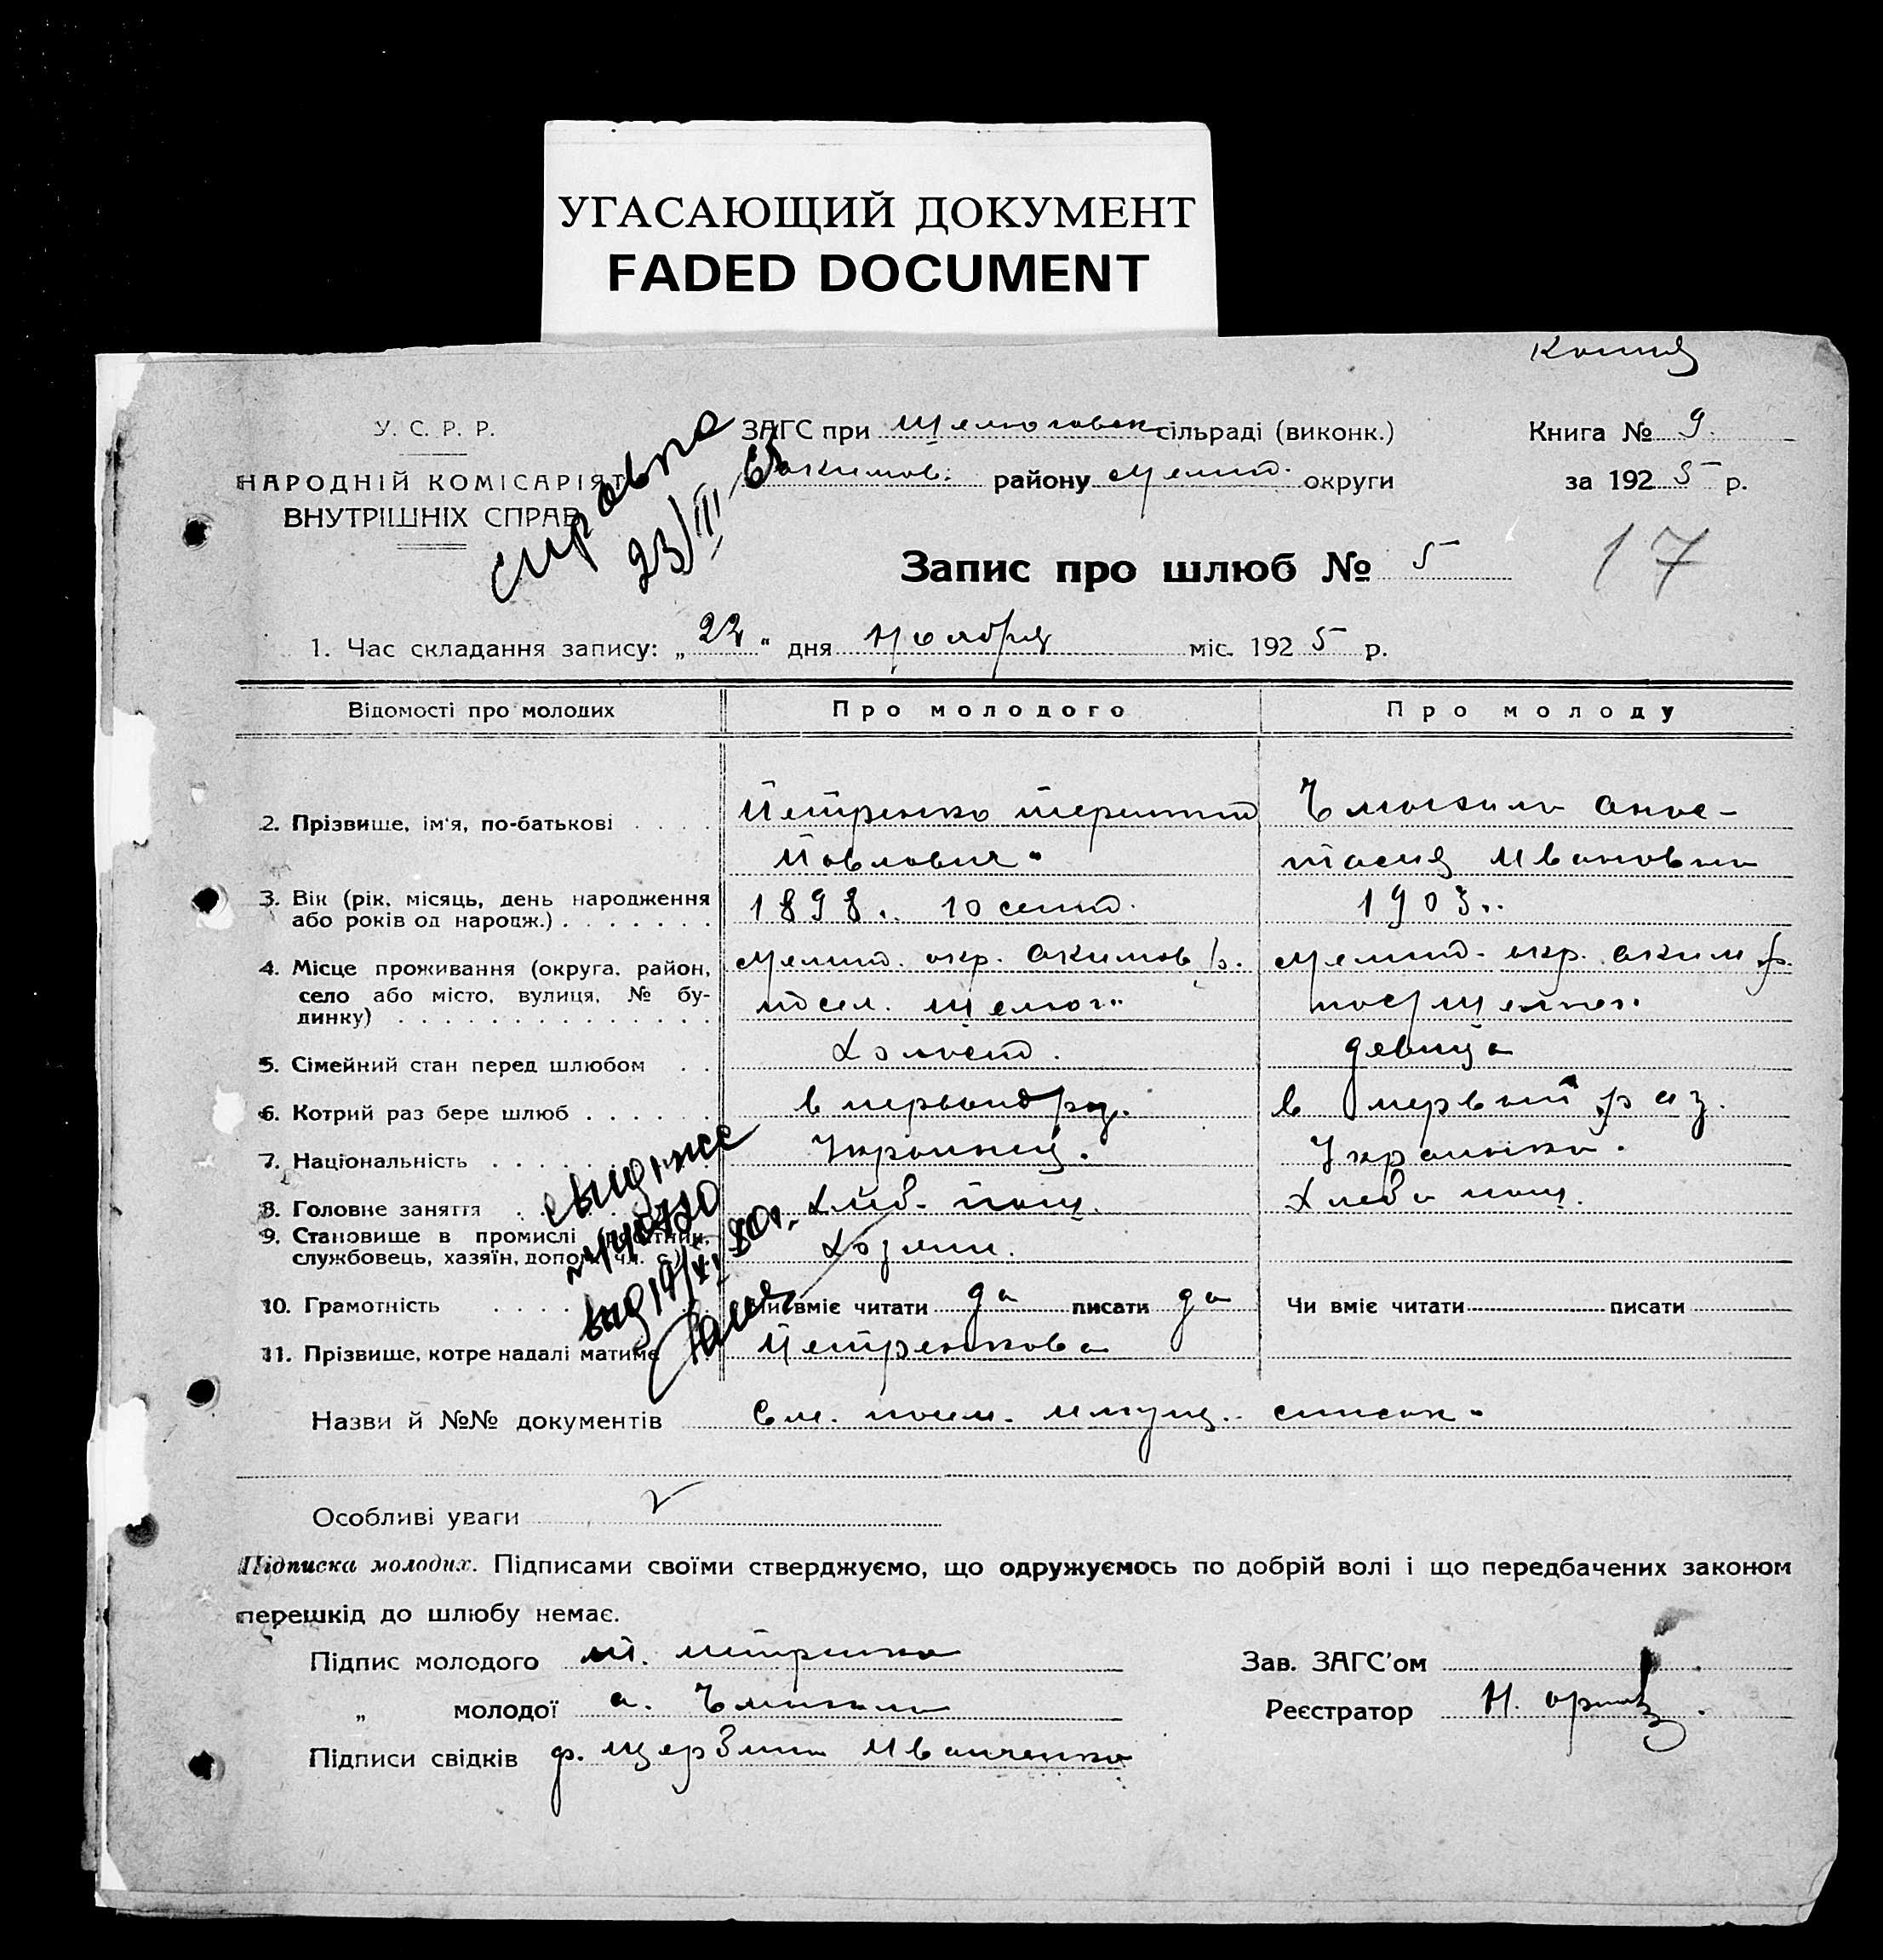 УГАСАЮЩИЙ ДОКУМЕНТ
FADED DOCUMENT
Копия
У. С. Р. Р.
НАРОДНІЙ КОМІСАРІЯТ
ВНУТРІШНІХ СПРАВ
справка
23/III
ЗАГС при сільраді (виконк.)
Акимов. району Мелит. округи
Книга № 9.
за 1925 р.
Запис про шлюб № 5
17
1. Час складання запису: „22“ дня Ноября міс. 1925 р.
Відомості про молодих
Про молодого
Про молоду
2. Прізвище, ім'я, по-батькові . . . .
Петренко Терентий
Павлович
Анас-
тасия Ивановна
3. Вік (рік, місяць, день народження
або років од народж.) . . . . . . .
1898. 10 сент.
1903.
4. Місце проживання (округа, район,
село або місто, вулиця, № бу-
динку) . . . . . . . . . . . . . .
Мелит. окр. Акимов р.
посел.
Мелит. окр. Аким р.
5. Сімейний стан перед шлюбом . .
Холост.
девица
6. Котрий раз бере шлюб . . . . . .
в первый раз.
в первый раз.
7. Національність . . . .
Украинец.
Украинка.
8. Головне заняття
Хлеб. паш.
Хлебо паш.
9. Становище в промислі (робітник,
службовець, хазяїн, допом. чл. с.)
Хозяин.
10. Грамотність . . . .
Чи вміє читати да писати да
Чи вміє читати писати
11. Прізвище, котре надалі матиме
Петренкова
Назви й №№ документів См. список.
Особливі уваги
Підписка молодих. Підписами своїми стверджуємо, що одружуємось по добрій волі і що передбачених законом
перешкід до шлюбу немає.
Підпис молодого Т. Петренко
„ молодої А.
Підписи свідків Ф. Щербина Иванченко
Зав. ЗАГС'ом
Реєстратор Н.